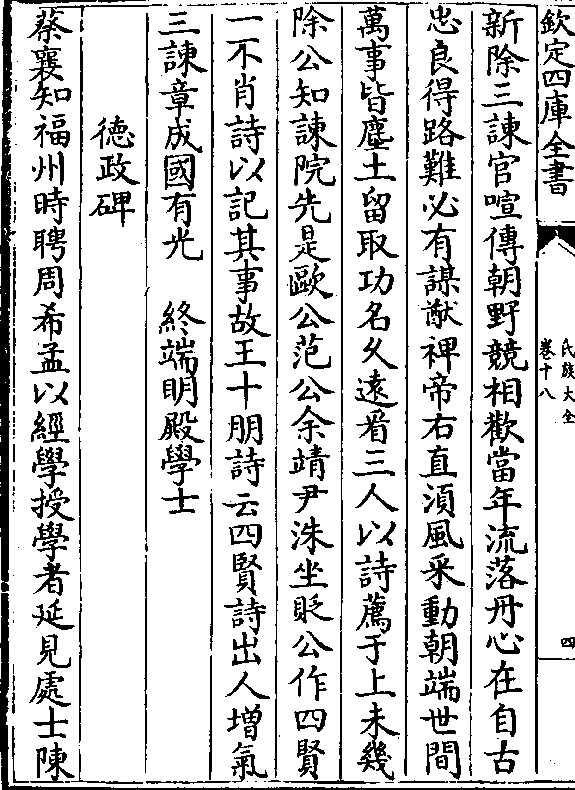 欽定四庫全書
氏族大全
卷十八
四
新除三諫官喧傳朝野競相歡當年流落丹心在自古
忠良得路難必有謀猷裨帝右直須風采動朝端世間
萬事皆塵土留取功名久遠看三人以詩薦于上未幾
除公知諫院先是歐公范公余靖尹洙坐貶公作四賢
一不肖詩以記其事故王十朋詩云四賢詩出人增氣
三諫章成國有光　終端明殿學士
德政碑
蔡襄知福州時聘周希孟以經學授學者延見處士陳